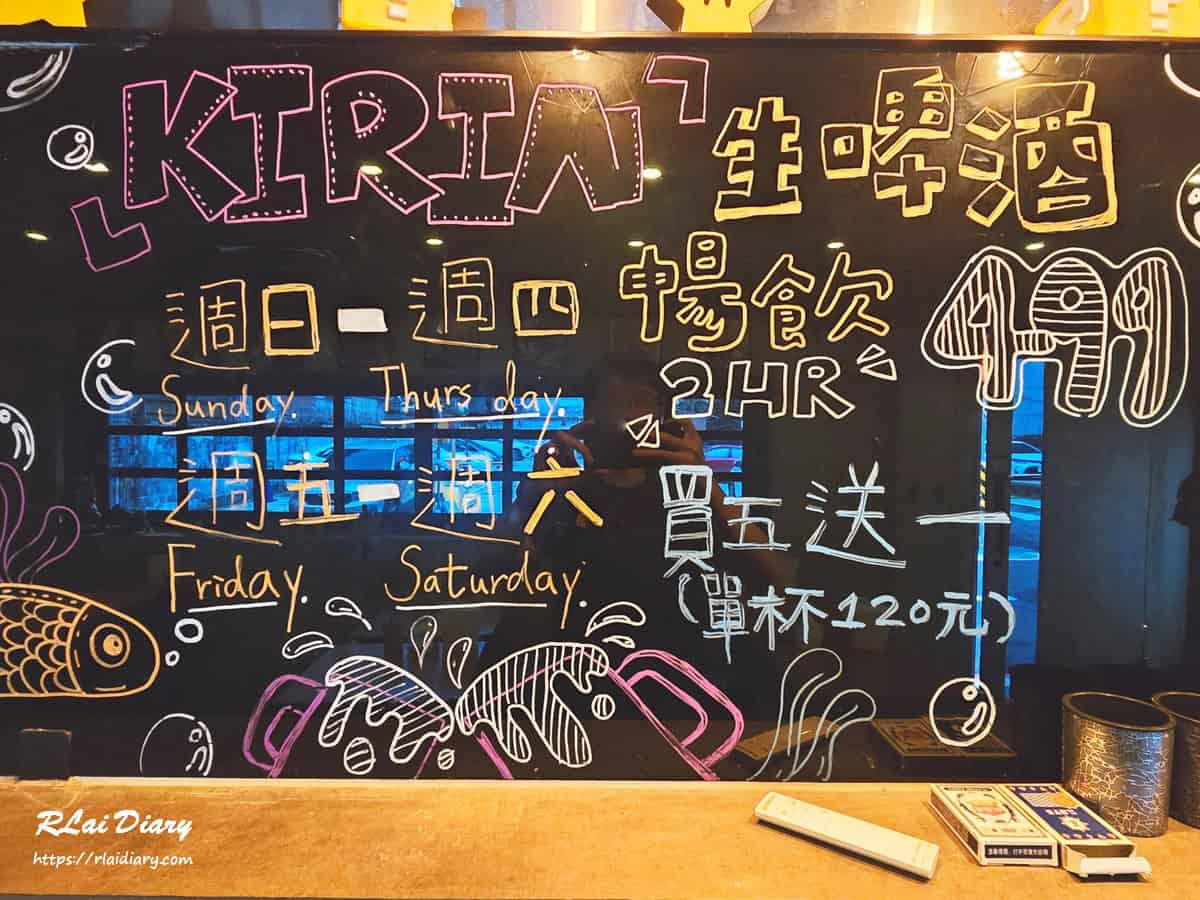 「KIRIN」生啤酒
週日-週四 暢飲 499
Sunday. Thursday. 2HR
週五-週六 買五送一
Friday. Saturday. (單杯120元)
RLai Diary
https://rlaidiary.com